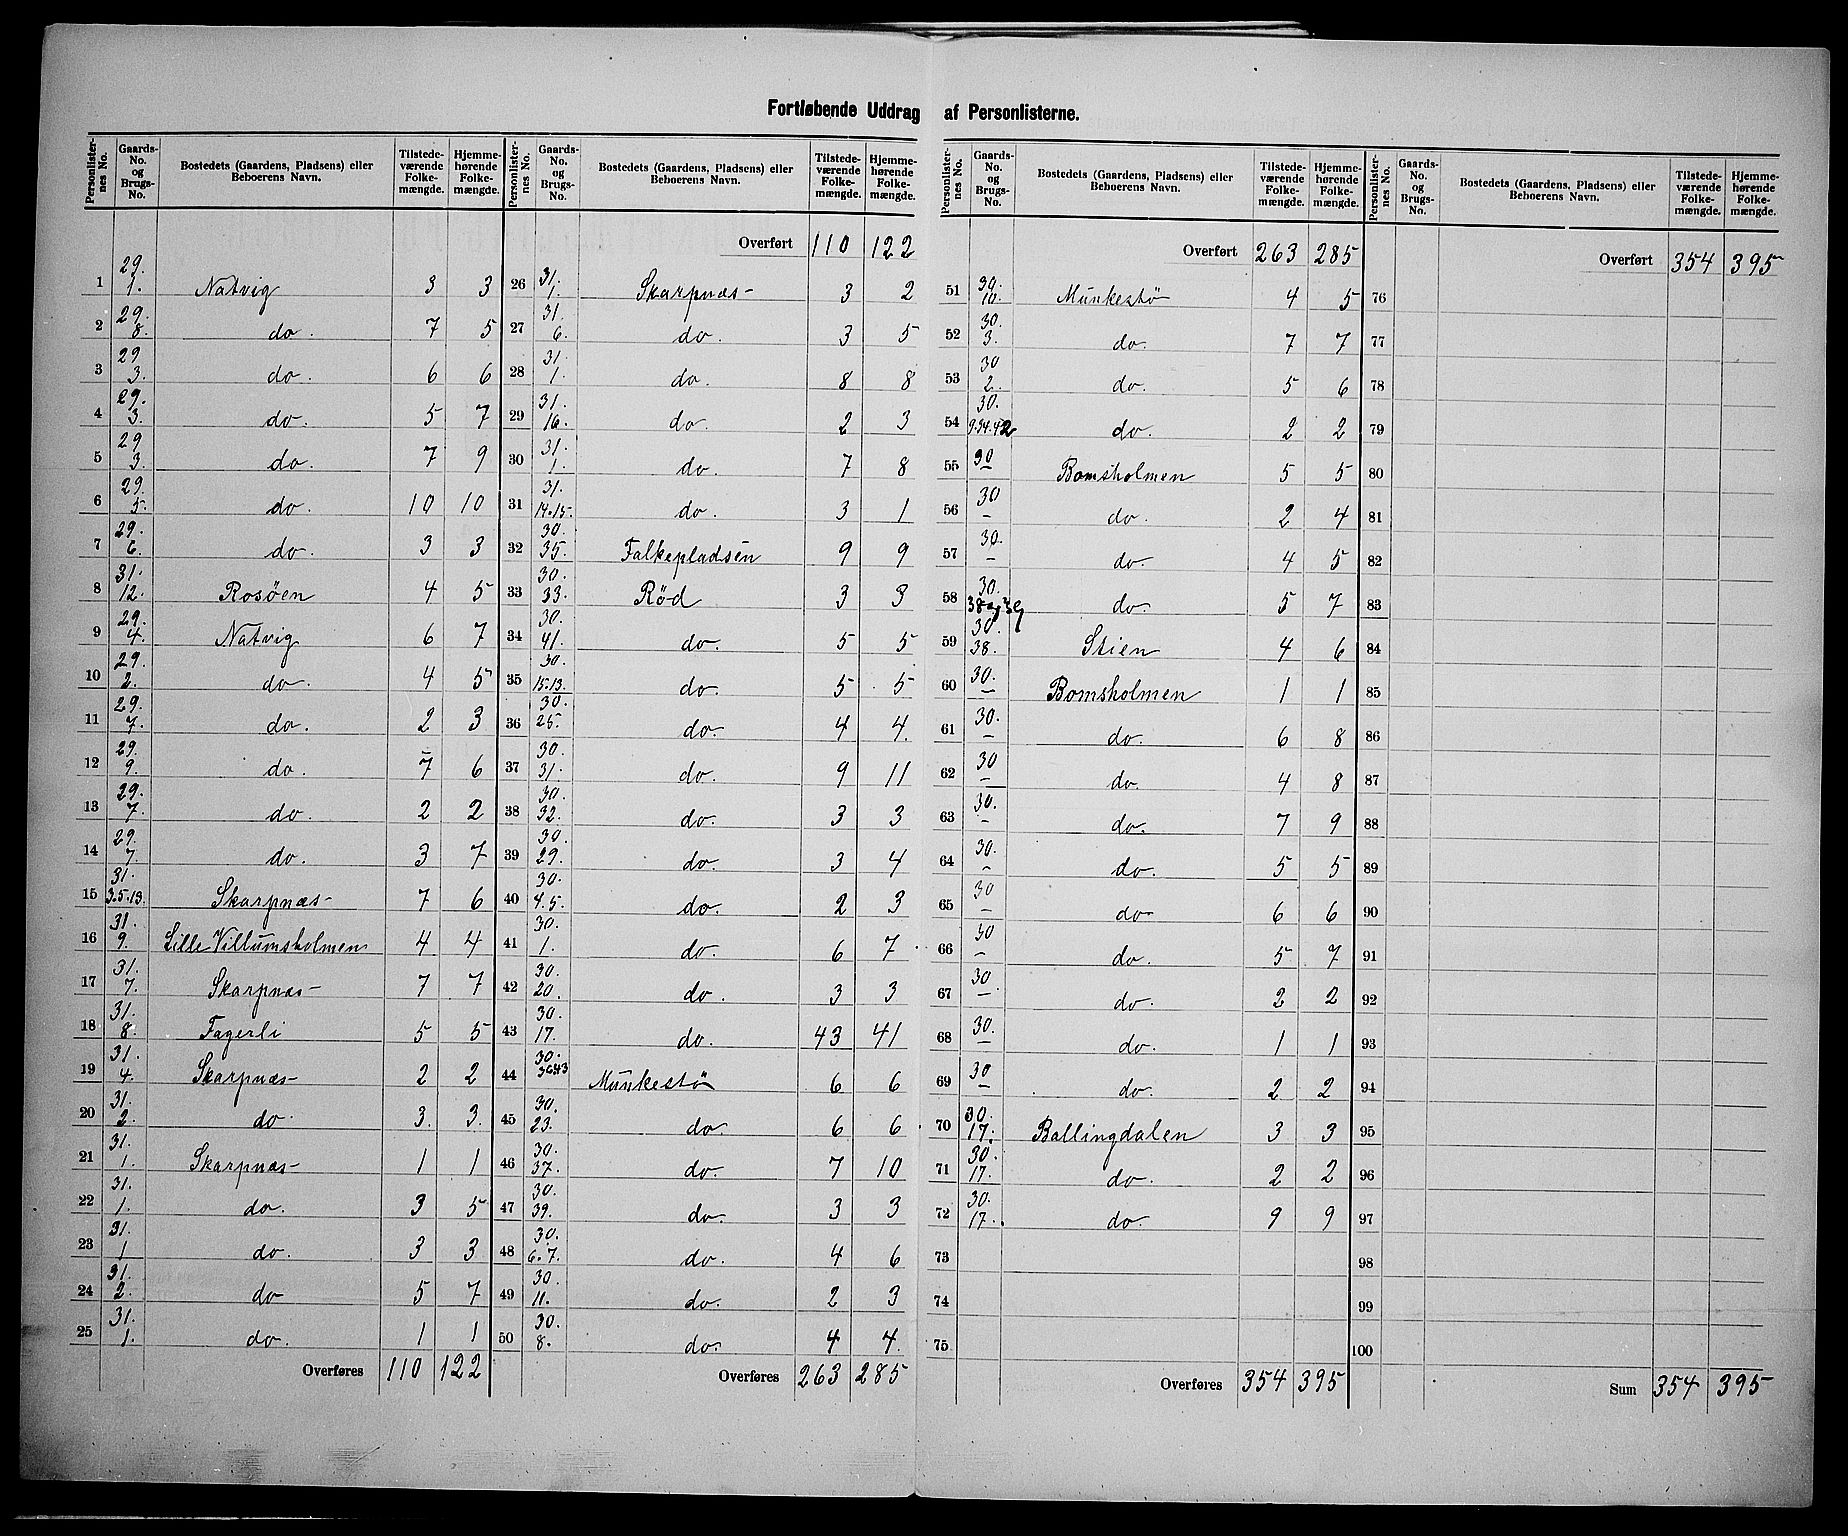 Fortløbende Uddrag af Personlisterne.
Personlister-nes No. | Gaards-No. og Brugs-No. | Bostedets (Gaardens, Pladsens) eller Beboerens Navn. | Tilstede-værende Folke-mængde. | Hjemme-hørende Folke-mængde.
1 | 29. 1. | Natvig | 3 | 3
2 | 29. 8. | do. | 7 | 5
3 | 29 3. | do. | 6 | 6
4 | 29. 3. | do. | 5 | 7
5 | 29 3. | do. | 7 | 9
6 | 29. 5. | do. | 10 | 10
7 | 29. 6. | do. | 3 | 3
8 | 31. 12. | Rosöen | 4 | 5
9 | 29. 4. | Natvig | 6 | 7
10 | 29. 2. | do. | 4 | 5
11 | 29. 7. | do. | 2 | 3
12 | 29. 9. | do. | 7 | 6
13 | 29. 7. | do. | 2 | 2
14 | 29. 7 | do. | 3 | 7
15 | 31. 3.5.13. | Skarpnæs- | 7 | 6
16 | 31. 9. | Lille Villumsholmen | 4 | 4
17 | 31. 7. | Skarpnæs- | 7 | 7
18 | 31. 8. | Fagerli | 5 | 5
19 | 31. 4. | Skarpnæs- | 2 | 2
20 | 31. 2. | do. | 3. | 3.
21 | 31. 1. | Skarpnæs- | 1 | 1
22 | 31. 1. | do. | 3 | 5
23 | 31. 1 | do. | 3 | 3
24 | 31. 2. | do | 5 | 7
25 | 31. 1. | do. | 1 | 1
Overføres | 110 | 122
Personlister-nes No. | Gaards-No. og Brugs-No. | Bostedets (Gaardens, Pladsens) eller Beboerens Navn. | Tilstede-værende Folke-mængde. | Hjemme-hørende Folke-mængde.
Overført | 110 | 122
26 | 31. 1. | Skarpnæs- | 3 | 2
27 | 31. 6. | do. | 3 | 5
28 | 31. 1. | do. | 8 | 8
29 | 31. 16. | do. | 2 | 3
30 | 31. 1. | do. | 7 | 8
31 | 31. 14.15. | do. | 3 | 1
32 | 30. 35. | Falkepladsen | 9 | 9
33 | 30. 33. | Rød | 3 | 3
34 | 30. 41. | do. | 5 | 5
35 | 30. 15.13. | do. | 5 | 5
36 | 30. 25. | do. | 4 | 4.
37 | 30. 31. | do. | 9 | 11
38 | 30. 32. | do. | 3 | 3
39 | 30. 29. | do. | 3 | 4
40 | 30. 4.5. | do. | 2 | 3
41 | 30. 1. | do. | 6 | 7
42 | 30. 20. | do. | 3 | 3
43 | 30. 17. | do. | 43 | 41
44 | 30. | Munkestø | 6 | 6
45 | 30. 23. | do. | 6 | 6
46 | 30. 37. | do. | 7 | 10
47 | 30. 39. | do. | 3 | 3
48 | 30. 6.7. | do. | 4 | 6
49 | 30. 11. | do. | 2 | 3
50 | 30. 8. | do. | 4 | 4.
Overføres | 263 | 285
Personlister-nes No. | Gaards-No. og Brugs-No. | Bostedets (Gaardens, Pladsens) eller Beboerens Navn. | Tilstede-værende Folke-mængde. | Hjemme-hørende Folke-mængde.
Overført | 263 | 285
51 | 30. 10. | Munkestø | 4 | 5
52 | 30. 3. | do. | 7 | 7
53 | 30 2. | do. | 5 | 6
54 | 30. | do. | 2 | 2
55 | 30 – | Bomsholmen | 5 | 5
56 | 30 – | do. | 2 | 4
57 | 30. – | do. | 4 | 5
58 | 30. 38 og 39 | do. | 5 | 7
59 | 30. 38. | Stien | 4 | 6
60 | 30. – | Bomsholmen | 1 | 1
61 | 30. – | do. | 6 | 8
62 | 30 – | do. | 4 | 8
63 | 30. – | do. | 7 | 9
64 | 30. – | do. | 5 | 5
65 | 30 – | do | 6 | 6
66 | 30 – | do. | 5 | 7
67 | 30 – | do. | 2 | 2
68 | 30. – | do. | 1 | 1
69 | 30 – | do. | 2 | 2
70 | 30. 17. | Ballingdalen | 3 | 3
71 | 30. 17. | do. | 2 | 2
72 | 30. 17. | do. | 9 | 9
73
74
75
Overføres | 354 | 395
Personlister-nes No. | Gaards-No. og Brugs-No. | Bostedets (Gaardens, Pladsens) eller Beboerens Navn. | Tilstede-værende Folke-mængde. | Hjemme-hørende Folke-mængde.
Overført | 354 | 395
76
77
78
79
80
81
82
83
84
85
86
87
88
89
90
91
92
93
94
95
96
97
98
99
100
Sum | 354 | 395